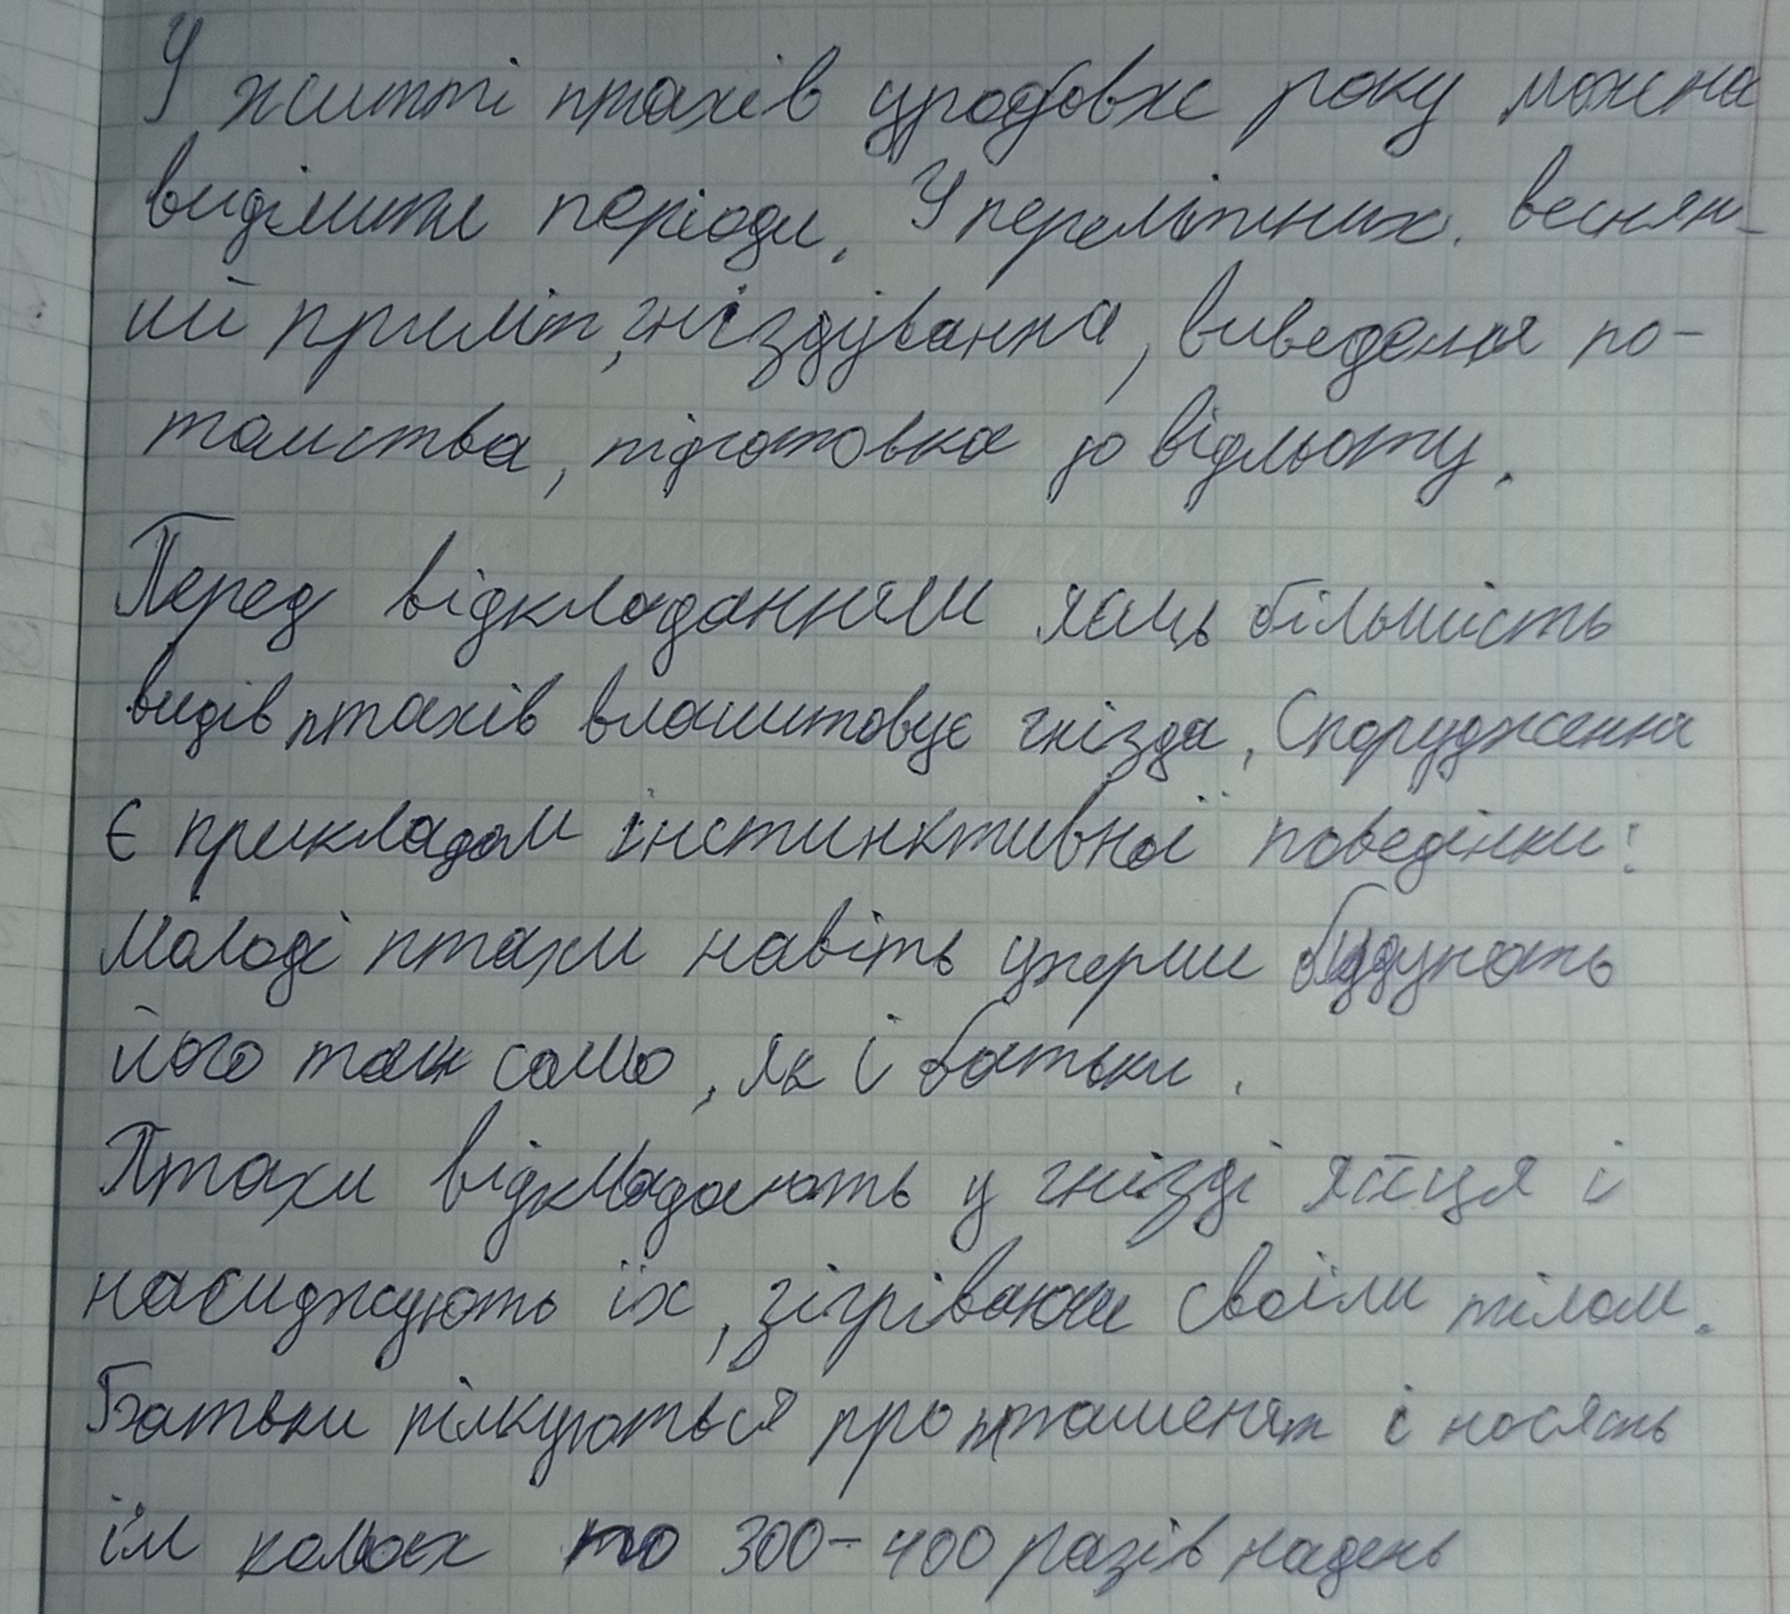 У житті птахів упродовж року можна
виділити періоди. У перелітних: веснян-
ий приліт, гніздування, виведення по-
томства, підготовка до відльоту.
Перед відкладанням яєць більшість
видів птахів влаштовує гнізда. Спорудження
є прикладом інстинктивної поведінки:
Молоді птахи навіть уперше будують
його так само, як і батьки.
Птахи відкладають у гнізді яйця і
насиджують їх, зігріваючи своїм тілом.
Батьки піклуються про пташенят і носять
їм комах по 300-400 разів надень